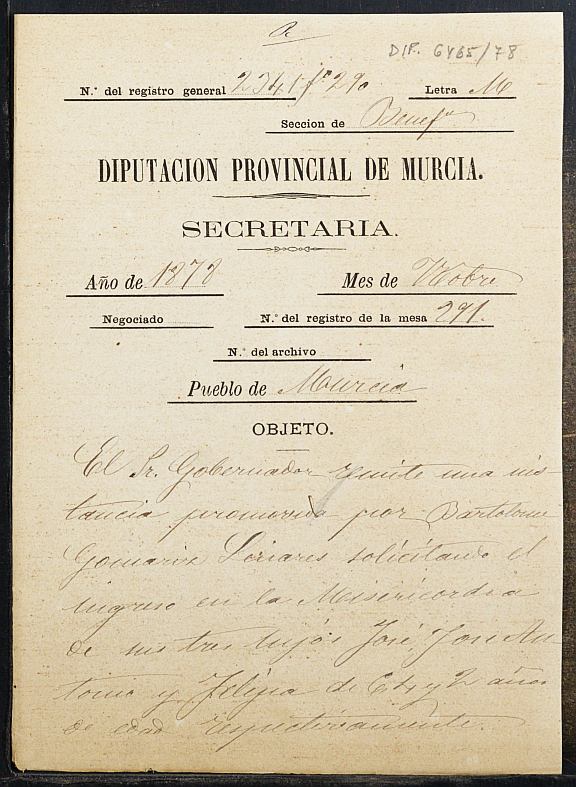 DIP. 6465/78
N.º del registro general 2341 fº 290 Letra M
Seccion de Benefª
DIPUTACION PROVINCIAL DE MURCIA.
SECRETARIA.
Año de 1878 Mes de
Negociado N.º del registro de la mesa 291.
N.º del archivo
Pueblo de Murcia
OBJETO.
El Sr. Gobernador remite una ins
tancia promovida por Bartolome
Gomariz Linares solicitando el
ingreso en la Misericordia
de sus tres hijos José, José An
tonio y Felipa de 6, 4 y 2 años
de edad respectivamente.